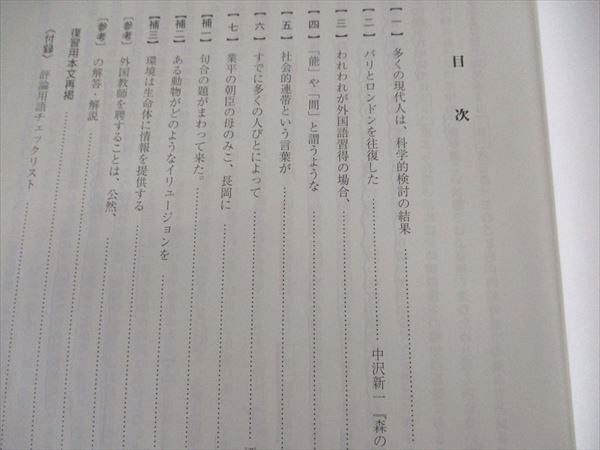 目次
【一】多くの現代人は、科学的検討の結果 中沢新一『森の
【二】パリとロンドンを往復した
【三】われわれが外国語習得の場合、
【四】「能」や「間」と謂うような
【五】社会的連帯という言葉が
【六】すでに多くの人びとによって
【七】業平の朝臣の母のみこ、長岡に
【補一】句合の題がまわって来た。
【補二】ある動物がどのようなイリュージョンを
【補三】環境は生命体に情報を提供する
〔参考〕外国教師を聘することは、公然、
〔参考〕の解答・解説
復習用本文再掲
〈付録〉評論用語チェックリスト